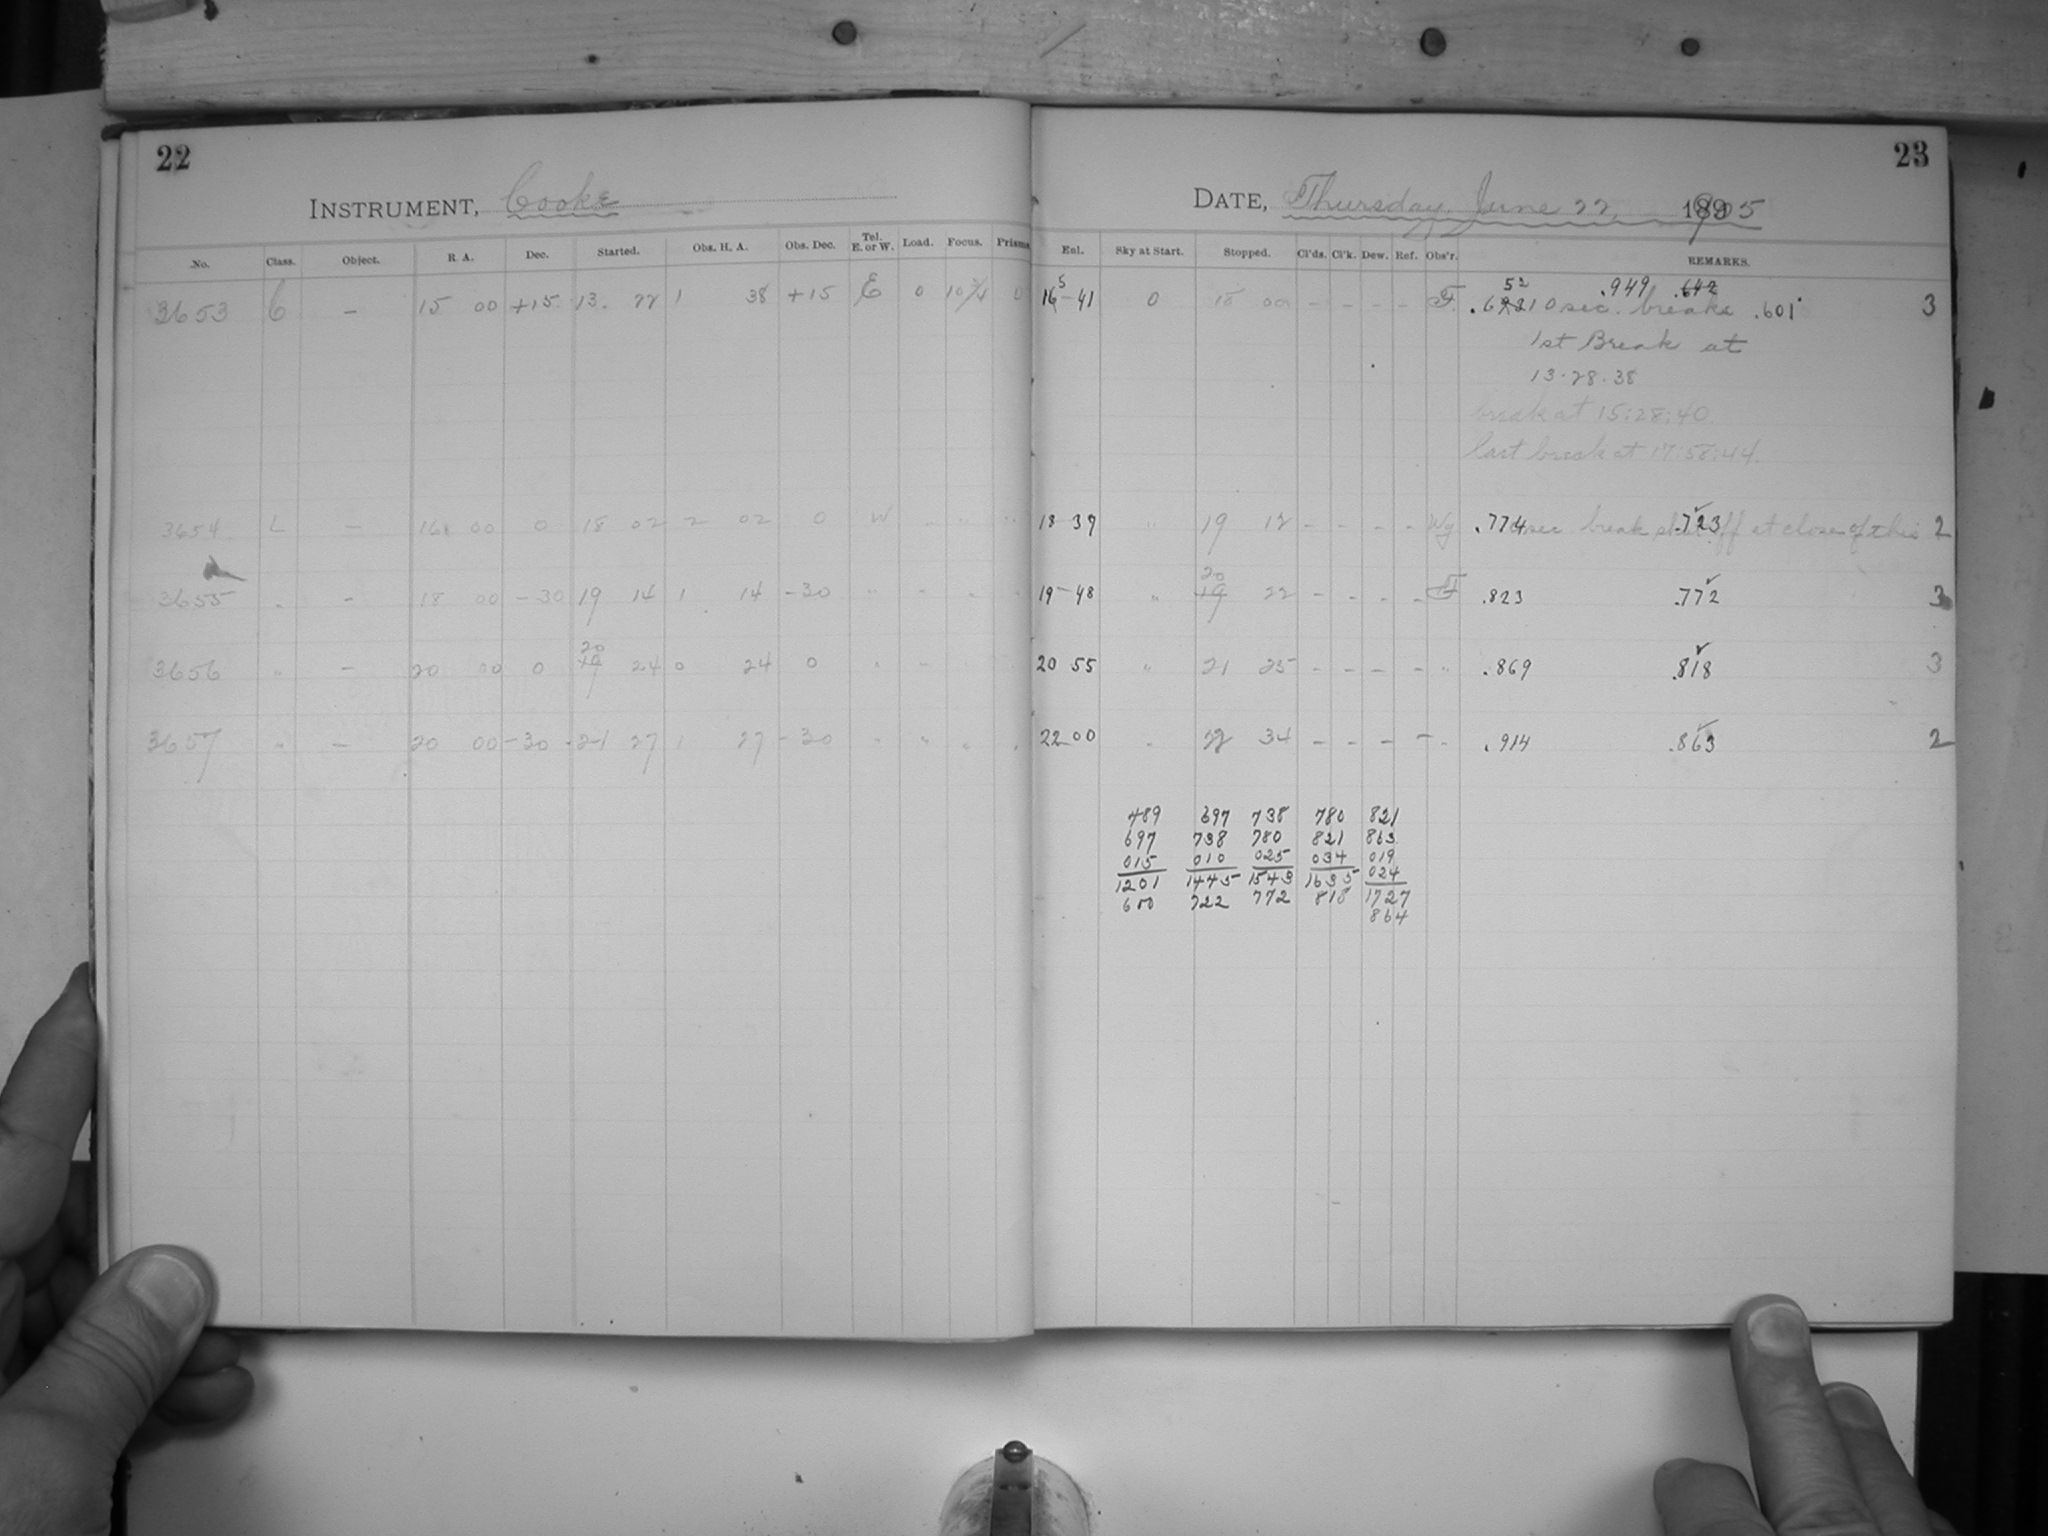 22
INSTRUMENT, Cooke
No. Class. Object. R. A. Dec. Started. Obs. H. A. Obs. Dec. Tel. E. or W. Load. Focus. Prisms
3653 C — 15 00 +15 13. 22 1 38 +15 E 0 10 3/4 0
3654 L — 16 00 0 18 02 2 02 0 W " " "
3655 " - 18 00 -30 19 14 1 14 -30 " " " "
20
3656 " - 20 00 0 19 24 0 24 0 " " " "
3657 " - 20 00 -30 21 27 1 27 -30 " " " "
23
DATE, Thursday, June 22, 1905
Enl. Sky at Start. Stopped. Cl'ds. Cl'k. Dew. Ref. Obs'r. REMARKS.
5 52 .949 .642
16-41 0 18 00 - - - - F. 10 sec. breaks .601 3
1st Break at
13.28.38
break at 15:28:40
last break at 17:58:44.
18 39 " 19 12 - - - - Wg .774 sec break shut off at close of this 2
.723
20
19-48 " 19 22 - - - - F .823 .772 3
20 55 " 21 25 - - - - " .869 .818 3
22 00 " 22 34 - - - - " .914 .863 2
489 697 738 780 821
697 738 780 821 863
015 010 025 034 019
1201 1445 1543 1635 024
600 722 772 818 1727
864